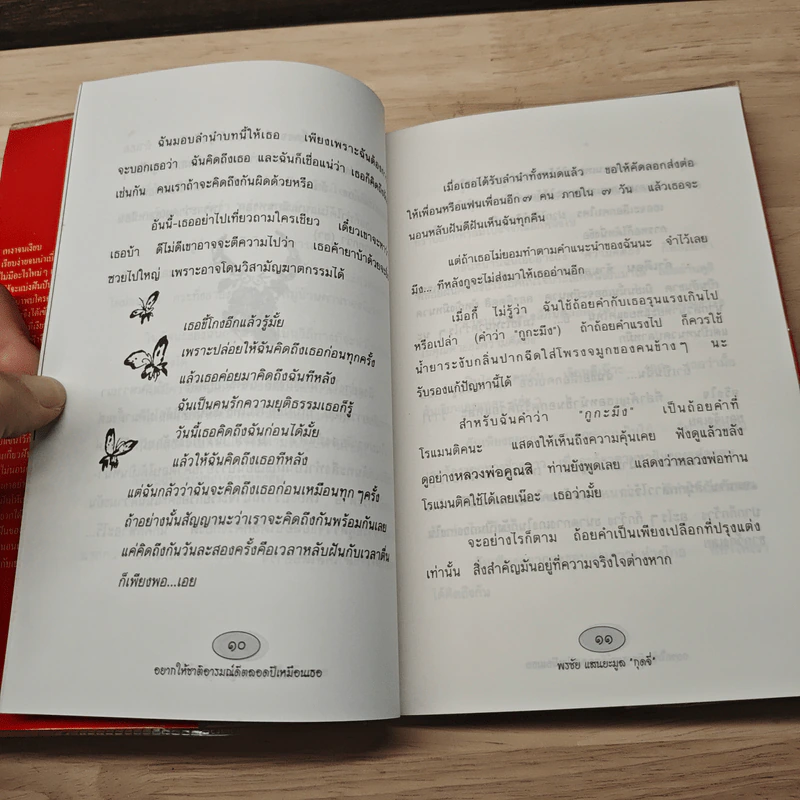 ฉันมอบลำนำบทนี้ให้เธอ เพียงเพราะฉันต้อง
จะบอกเธอว่า ฉันคิดถึงเธอ และฉันก็เชื่อแน่ว่า เธอก็คิดถึง
เช่นกัน คนเราถ้าจะคิดถึงกันผิดด้วยหรือ
อันนี้-เธออย่าไปเที่ยวถามใครเชียว เดี๋ยวเขาจะหา
เธอบ้า ดีไม่ดีเขาอาจจะตีความไปว่า เธอค้ายาบ้าด้วย
ซวยไปใหญ่ เพราะอาจโดนวิสามัญฆาตกรรมได้
เธอขี้โกงอีกแล้วรู้มั้ย
เพราะปล่อยให้ฉันคิดถึงเธอก่อนทุกครั้ง
แล้วเธอค่อยมาคิดถึงฉันทีหลัง
ฉันเป็นคนรักความยุติธรรมเธอก็รู้
วันนี้เธอคิดถึงฉันก่อนได้มั้ย
แล้วให้ฉันคิดถึงเธอทีหลัง
แต่ฉันกลัวว่าฉันจะคิดถึงเธอก่อนเหมือนทุก ๆ ครั้ง
ถ้าอย่างนั้นสัญญานะว่าเราจะคิดถึงกันพร้อมกันเลย
แค่คิดถึงกันวันละสองครั้งคือเวลาหลับฝันกับเวลาตื่น
ก็เพียงพอ...เอย
๑๐
อยากให้ชาติอารมณ์ดีตลอดปีเหมือนเธอ
เมื่อเธอได้รับลำนำทั้งหมดแล้ว ขอให้คัดลอกส่งต่อ
ให้เพื่อนหรือแฟนเพื่อนอีก ๗ คน ภายใน ๗ วัน แล้วเธอจะ
นอนหลับฝันดีฝันเห็นฉันทุกคืน
แต่ถ้าเธอไม่ยอมทำตามคำแนะนำของฉันนะ จำไว้เลย
มึง... ทีหลังกูจะไม่ส่งมาให้เธออ่านอีก
เมื่อกี้ ไม่รู้ว่า ฉันใช้ถ้อยคำกับเธอรุนแรงเกินไป
หรือเปล่า (คำว่า "กูกะมึง") ถ้าถ้อยคำแรงไป ก็ควรใช้
น้ำยาระงับกลิ่นปากฉีดใส่โพรงจมูกของคนข้าง ๆ นะ
รับรองแก้ปัญหานี้ได้
สำหรับฉันคำว่า "กูกะมึง" เป็นถ้อยคำที่
โรแมนติคนะ แสดงให้เห็นถึงความคุ้นเคย ฟังดูแล้วขลัง
ดูอย่างหลวงพ่อคูณสิ ท่านยังพูดเลย แสดงว่าหลวงพ่อท่าน
โรแมนติคใช้ได้เลยเนิอะ เธอว่ามั้ย
จะอย่างไรก็ตาม ถ้อยคำเป็นเพียงเปลือกที่ปรุงแต่ง
เท่านั้น สิ่งสำคัญมันอยู่ที่ความจริงใจต่างหาก
๑๑
พรชัย แสนยะมูล "กุดจี่"